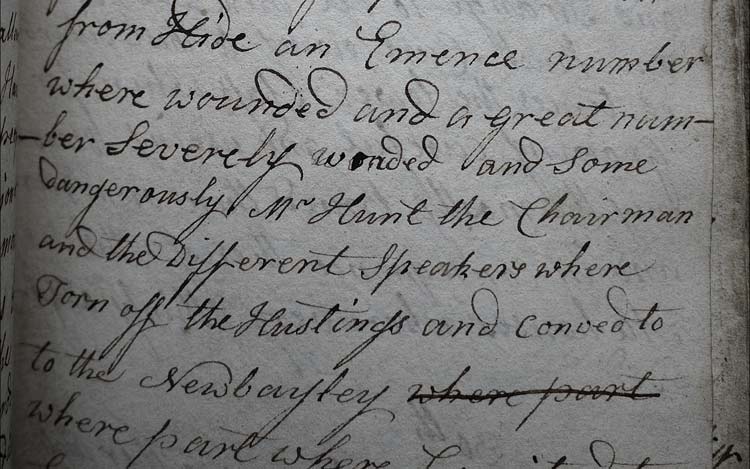 from Hide an Emence number
where wounded and a great num-
-ber Severely wonded and Some
dangerously. Mr Hunt the Chairman
and the Different Speakers where
Torn off the Hustings and conved to
to the Newbayley where part
where part where